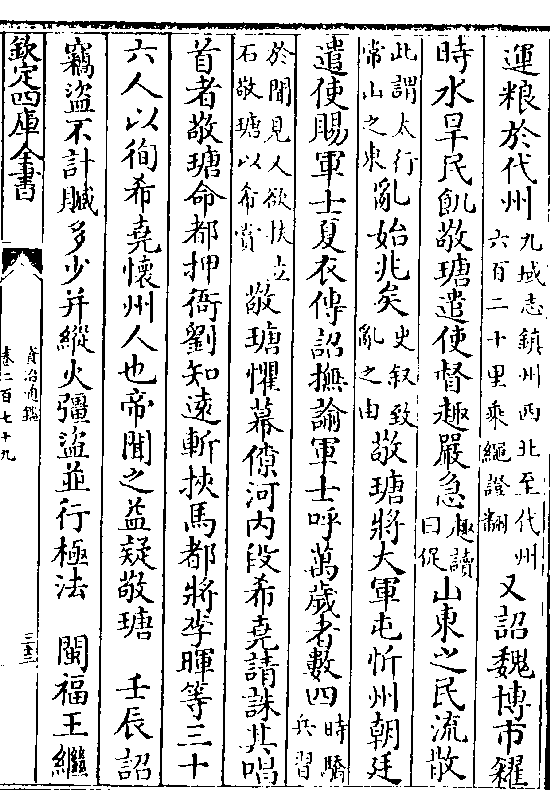 運粮於代州九域志鎮州西北至代州六百二十里乘繩證翻又詔魏博市糴
時水旱民飢敬瑭遣使督趣嚴急趣讀曰促山東之民流散
此謂太行常山之東亂始兆矣史叙致亂之由敬瑭將大軍屯忻州朝廷
遣使賜軍士夏衣傳詔撫諭軍士呼萬歲者數四時驕兵習
於聞見人欲扶立石敬瑭以希賞敬瑭懼幕僚河内段希堯請誅其唱
首者敬瑭命都押衙劉知遠斬挾馬都將李暉等三十
六人以徇希堯懷州人也帝聞之益疑敬瑭 壬辰詔
竊盜不計贓多少并縱火彊盜並行極法 閩福王繼
欽定四庫全書
資治通鑑
卷二百七十九
三十三